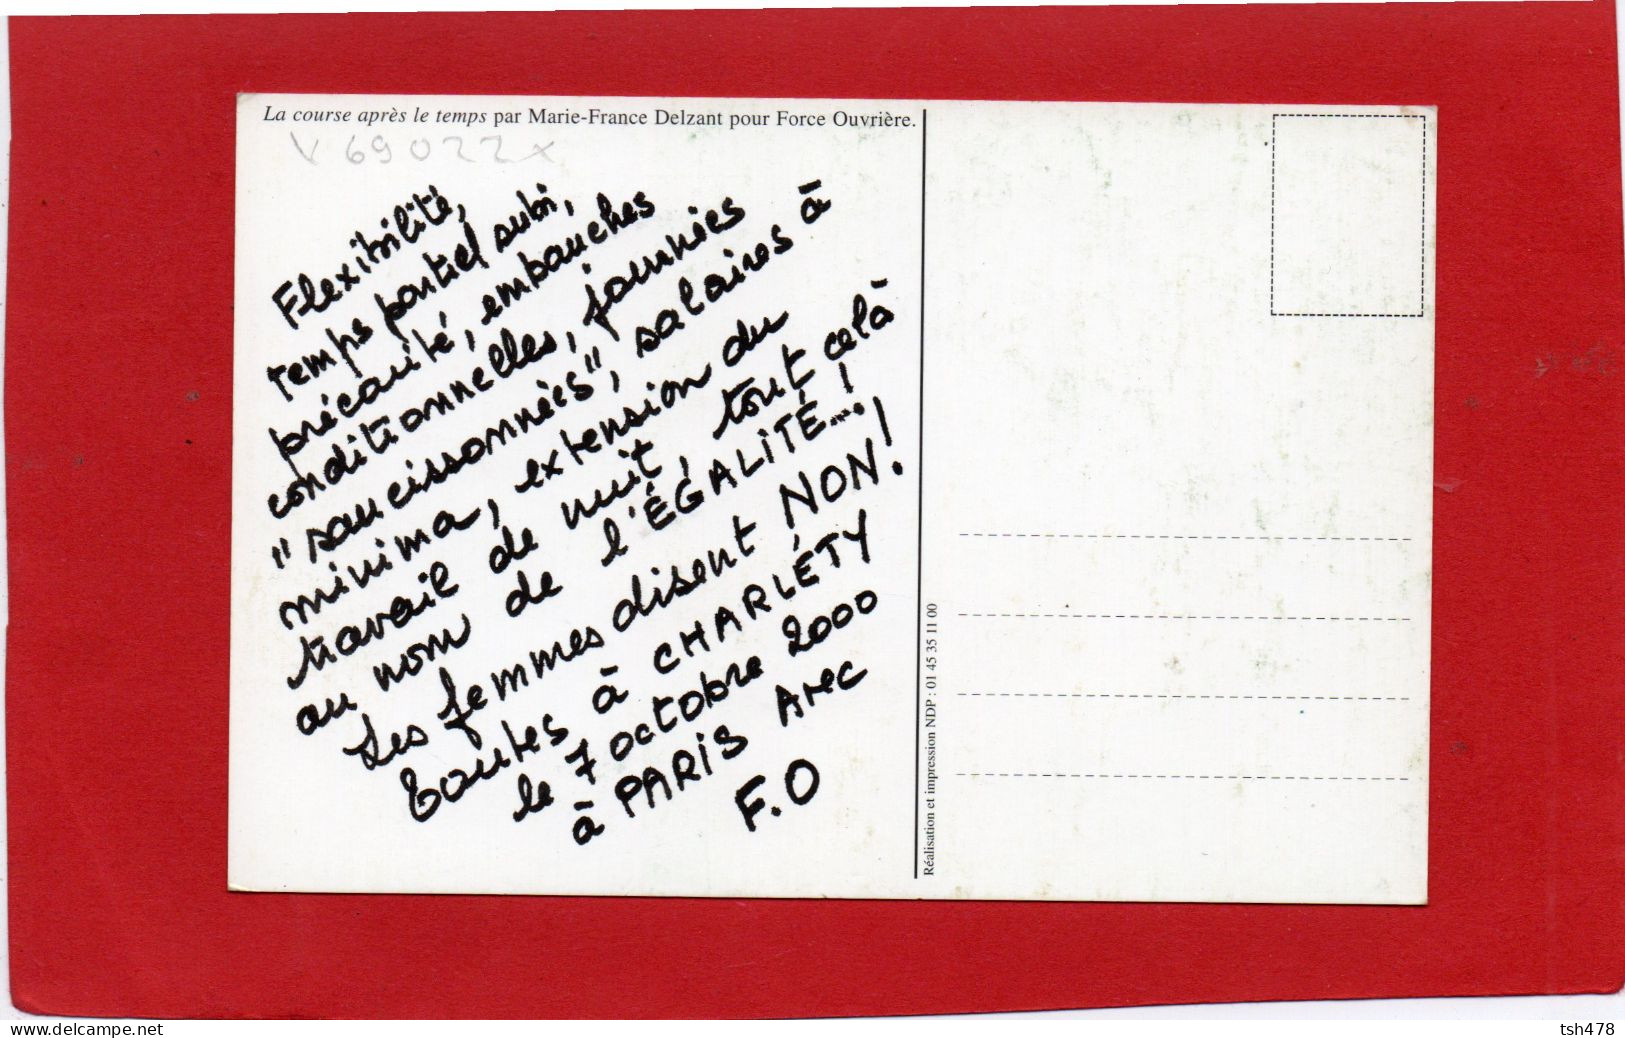 La course après le temps par Marie-France Delzant pour Force Ouvrière.
V 69022x
Flexibilité,
temps partiel subi,
précarité, embauches
conditionnelles, journées
"saucissonnées", salaires à
minima, extension du
travail de nuit, tout celà
au nom de l'ÉGALITÉ...!
Les femmes disent NON!
toutes à CHARLÉTY
le 7 octobre 2000
à PARIS Avec
F.O
Réalisation et impression NDP : 01 45 35 11 00
delcampe.net
tsh478